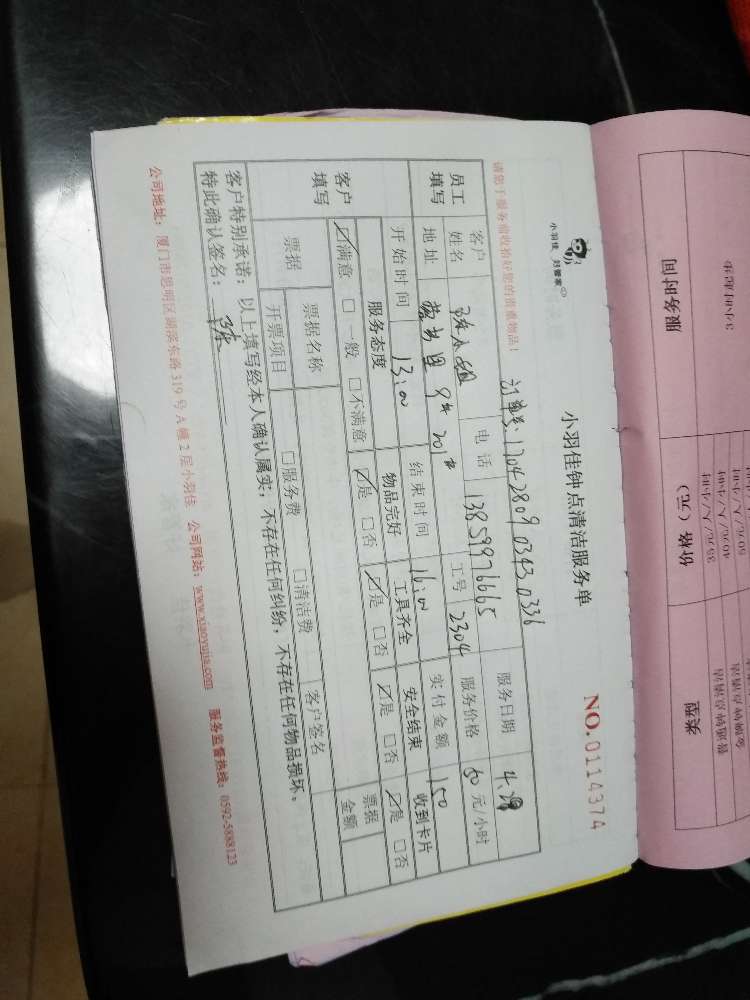 小羽佳 好管家
小羽佳钟点清洁服务单
NO.0114374
请您于服务前收拾好您的贵重物品!
订单号:17042809 0343 0336
员工填写 客户姓名 电话 13859976665 服务日期 4.29
地址 9# 201# 工号 2304 服务价格 50 元/小时
开始时间 13:00 结束时间 16:00 实付金额 150
客户填写 服务态度 物品完好 工具齐全 安全结束 收到卡片
☑满意 □一般 □不满意 ☑是 □否 ☑是 □否 ☑是 □否 ☑是 □否
票据 票据名称 客户签名 票据金额
开票项目 □服务费 □清洁费
客户特别承诺:以上填写经本人确认属实,不存在任何纠纷,不存在任何物品损坏。
特此确认签名:
公司地址:厦门市思明区湖滨东路 319 号 A 幢 2 层小羽佳 公司网站:www.xiaoyujia.com 服务监督热线:0592-5888123
服务时间 价格(元) 类型
3小时起步